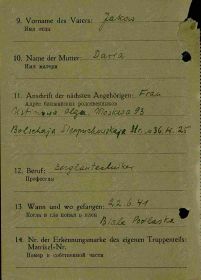 9. Vorname des Vaters: Jakow
Имя отца
10. Name der Mutter: Daria
Имя матери
11. Anschrift der nächsten Angehörigen: Frau
Адрес ближайших родственников
Olga Moskwa 93
Bolschaja Serpuchowskaja Str. N 36, K. 25
12. Beruf:
Профессия
13. Wann und wo gefangen: 22.6.41
Когда и где попал в плен
Biala Podlaska
14. Nr. der Erkennungsmarke des eigenen Truppenteils:
Matrikel-Nr.
Номер в собственной части